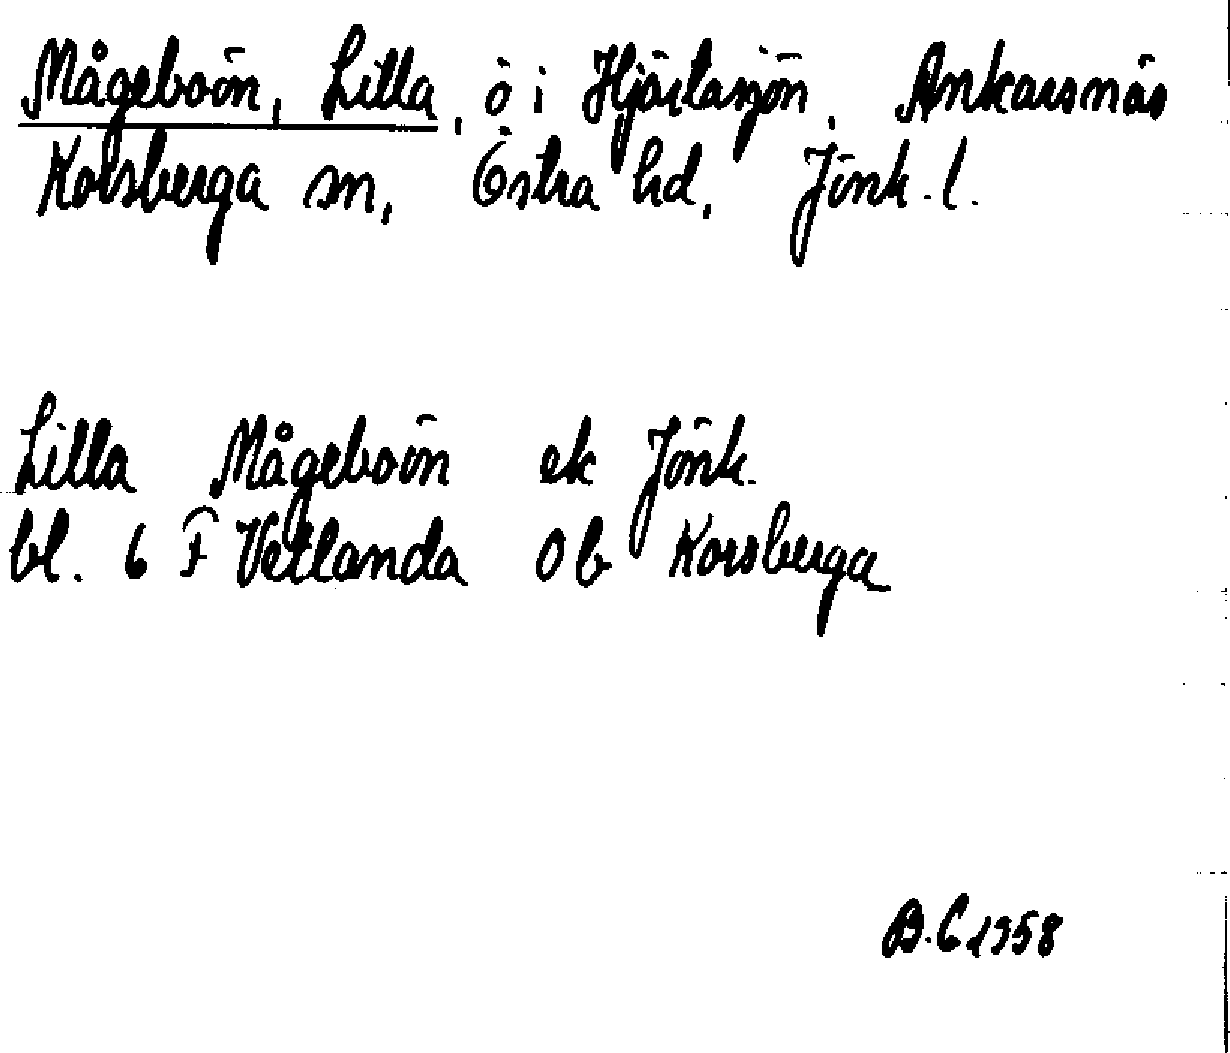 Mågeboön, Lilla, ö i Hjärtasjön, Ankarsnäs
Korsberga sn, Östra hd, Jönk. l.
Lilla Mågeboön ek Jönk.
bl. 6 F Vetlanda Ob Korsberga
B.C 1958